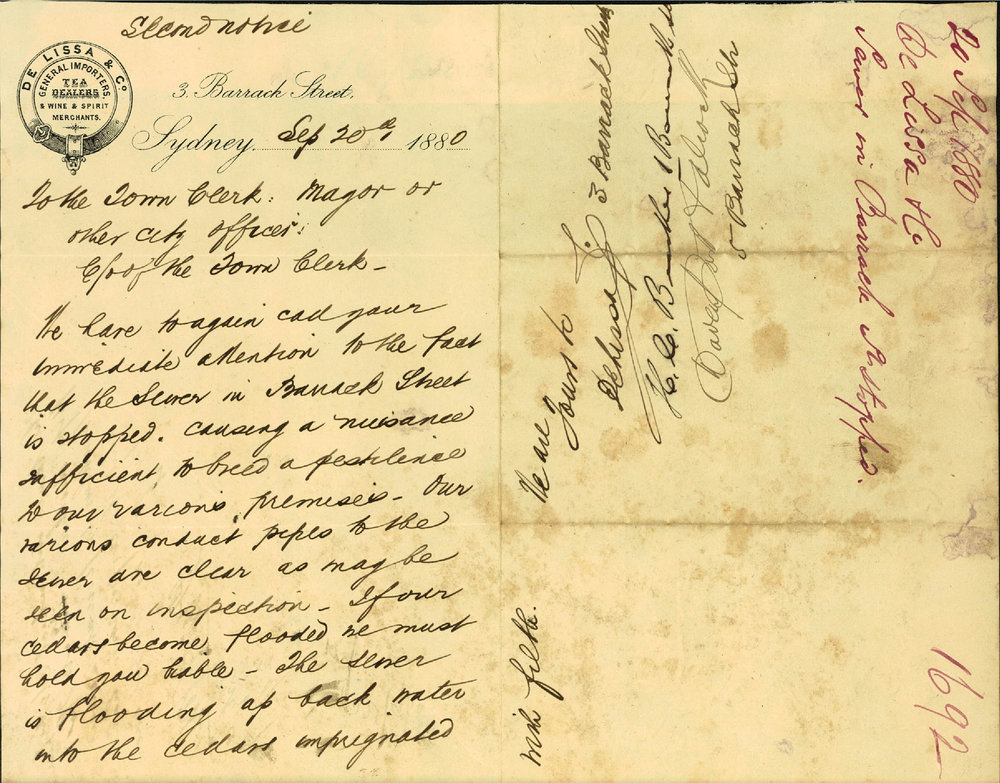 Second notice
DE LISSA & Co
GENERAL IMPORTERS,
TEA
DEALERS
& WINE & SPIRIT
MERCHANTS.
3. Barrack Street,
Sydney, Sep 20th 1880
To the Town Clerk: Mayor or
other city officer:
C/o of the Town Clerk -
We have to again call your
immediate attention to the fact
that the Sewer in Barrack Street
is stopped. causing a nuisance
sufficient to breed a pestilence
to our various premises - Our
various conduct pipes to the
Sewer are clear as may be
seen on inspection - If our
cellars become flooded we must
hold you liable - The sewer
is flooding up back water
into the cellars impregnated
with filth.
We are
Yours &c
DeLissa & Co 3 Barrack Street
H. C. 1 Barrack St
5 Barrack St
20 Sept 1880
De Lissa & Co
Sewer in Barrack St stopped.
1692